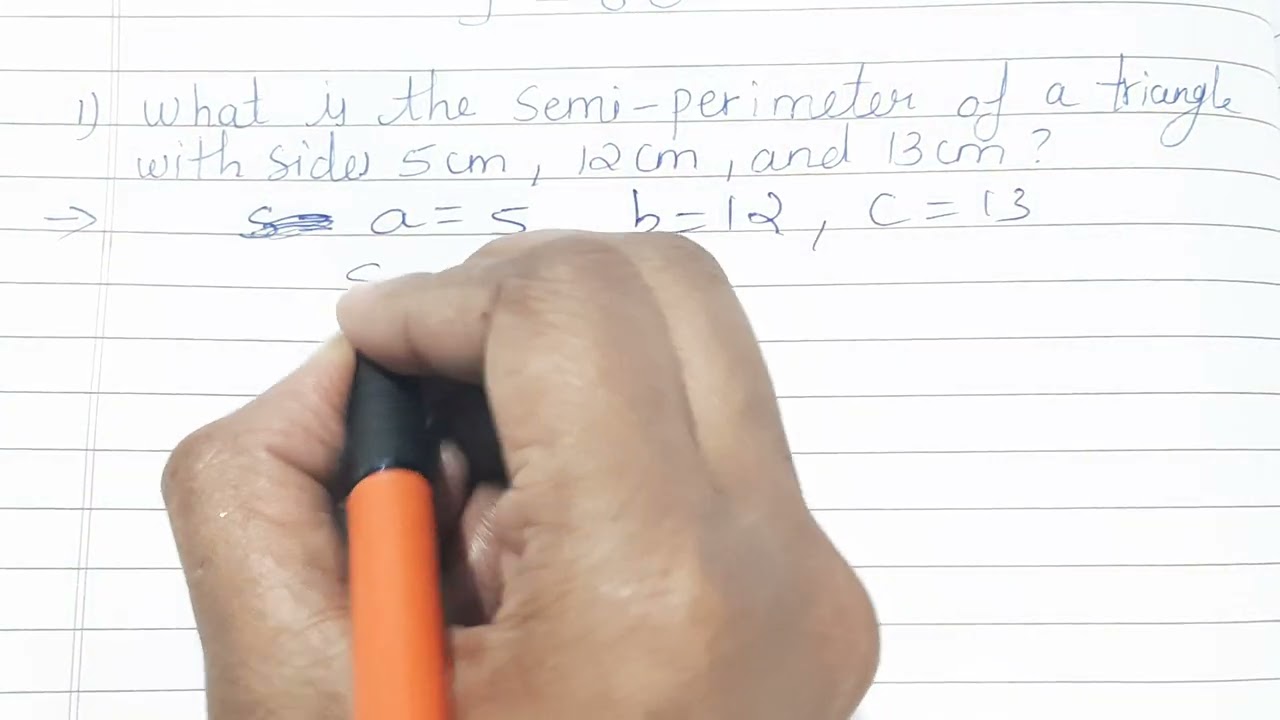 1) What is the semi-perimeter of a triangle
with sides 5cm, 12cm, and 13cm?
→ a=5 b=12, c=13
S